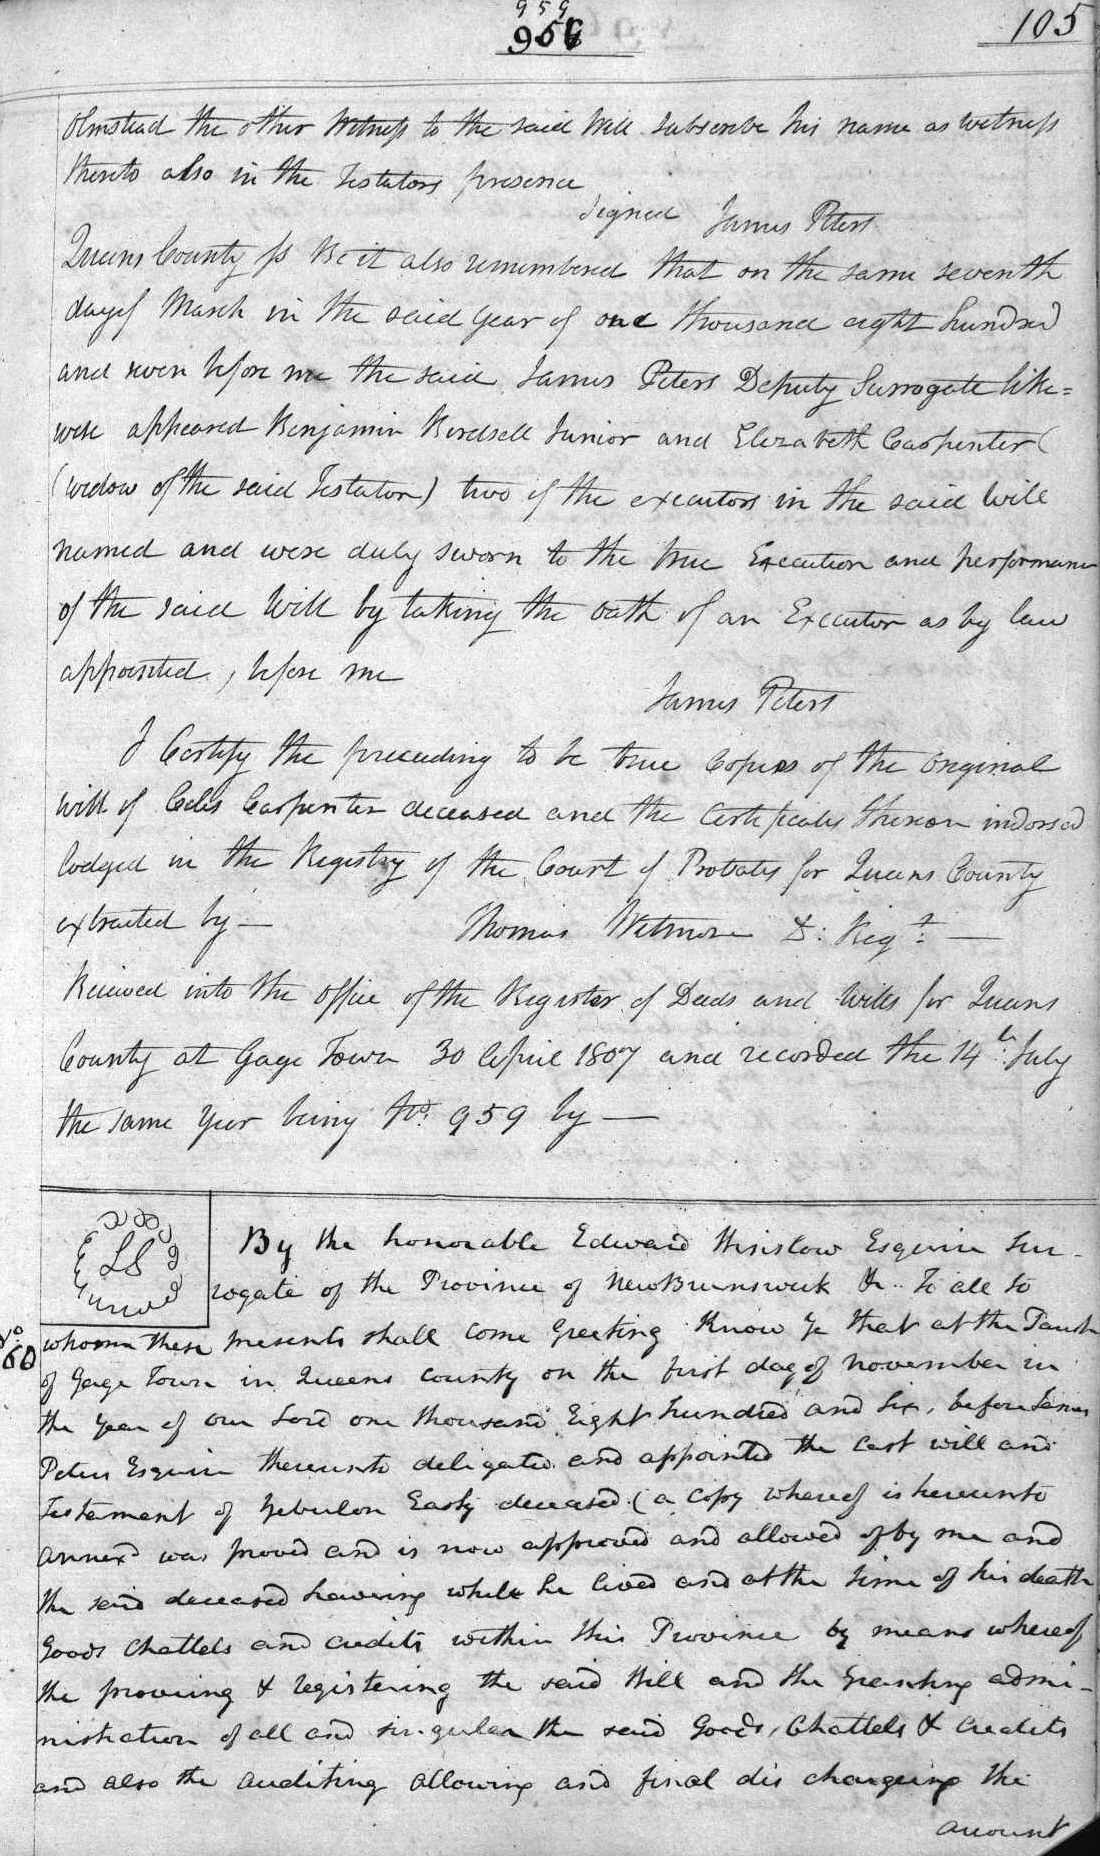 959
956
105
Olmstead the other Witness to the said Will subscribe his name as witness
thereto also in the Testators presence
Signed James Peters
Queens County ss Be it also remembered that on the same seventh
day of March in the said year of one thousand eight hundred
and seven before me the said James Peters Deputy Surrogate like=
wise appeared Benjamin Birdsell Junior and Elizabeth Carpenter (
(widow of the said Testator) two of the executors in the said Will
named and were duly sworn to the true Execution and performance
of the said Will by taking the oath of an Executor as by law
appointed, before me
James Peters
I Certify the preceeding to be true Copies of the Original
Will of Carpenter deceased and the Certificates thereon indorsed
lodged in the Registry of the Court of Probates for Queens County
extracted by —
Thomas Wetmore D: Regr. —
Received into the office of the Register of Deeds and Wills for Queens
County at Gage Town 30 April 1807 and recorded the 14th July
the same year being No. 959 by —
LS
By the honorable Edward Winslow Esquire Sur-
rogate of the Province of New Brunswick &c. To all to
No.
60
whom these presents shall come Greeting Know Ye that at the Parish
of Gage Town in Queens County on the first day of November in
the year of our Lord one thousand Eight hundred and Six, before James
Peters Esquire thereunto deligated and appointed the last will and
Testament of Zebulon Easty deceased (a Copy whereof is hereunto
annexd was proved and is now approved and allowed of by me and
the said deceased having while he lived and at the time of his death
Goods Chattels and Credits within this Province by means whereof
the proving & registering the said Will and the Granting admi-
nistration of all and singular the said Goods, Chattels & Credits
and also the auditing allowing and final dis chargeing the
account